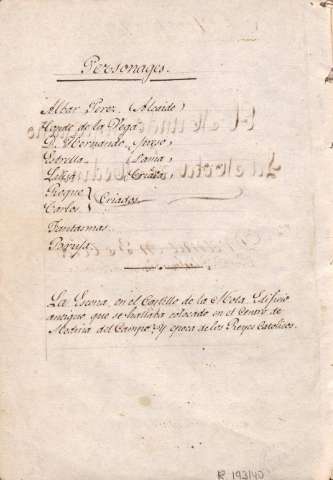 Personages.
Albar Perez (Alcaide)
Conde de la Vega
D. Hernando
Estrella (Dama)
Luisa (Criada)
Roque } Criados
Carlos
Fantasmas.
La Escena, en el Castillo de la Mota. Edificio
antiguo que se hallaba colocado en el Centro de
Medina del Campo. Y epoca de los Reyes Catolicos.
R 193140